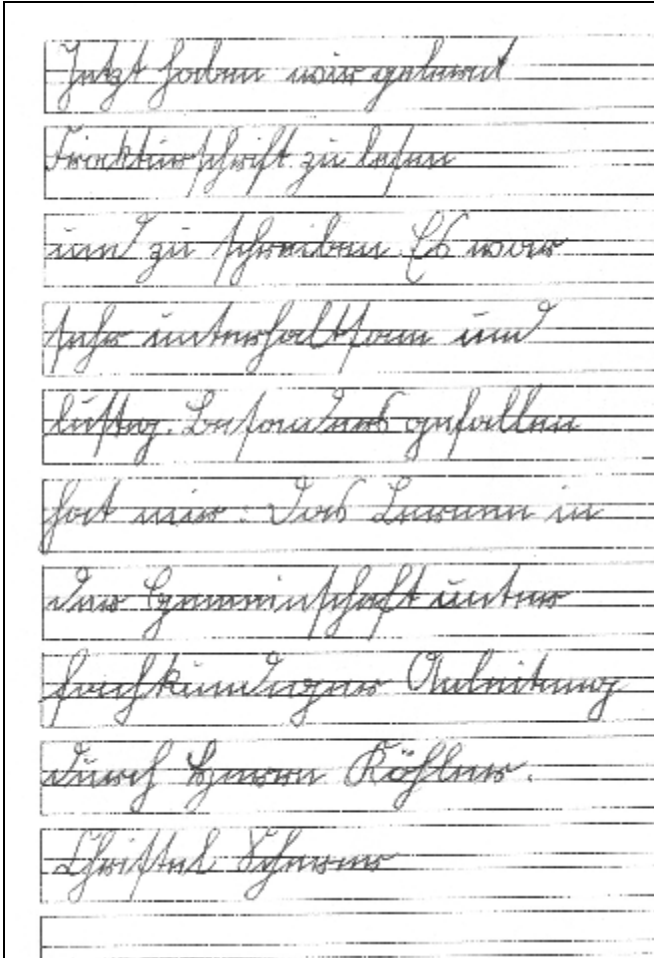 Jetzt haben wir gelernt
Frakturschrift zu lesen
und zu schreiben. Es war
sehr unterhaltsam und
lustig. Besonders gefallen
hat mir: Das Lernen in
der Gemeinschaft unter
fachkundiger Anleitung
durch Herrn Köhler.
Christel Scherer